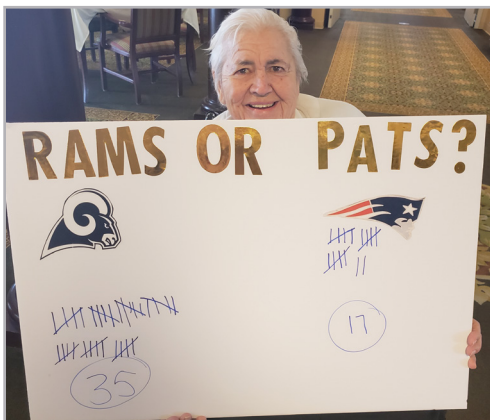 RAMS OR PATS?
35
17